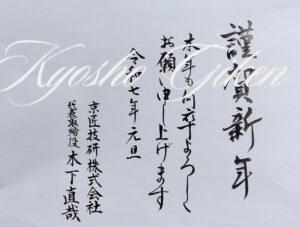 謹賀新年
本年も何卒よろしく
お願い申し上げます
令和七年 元旦
京匠技研株式会社
代表取締役 木下直哉
Kyosho Giken